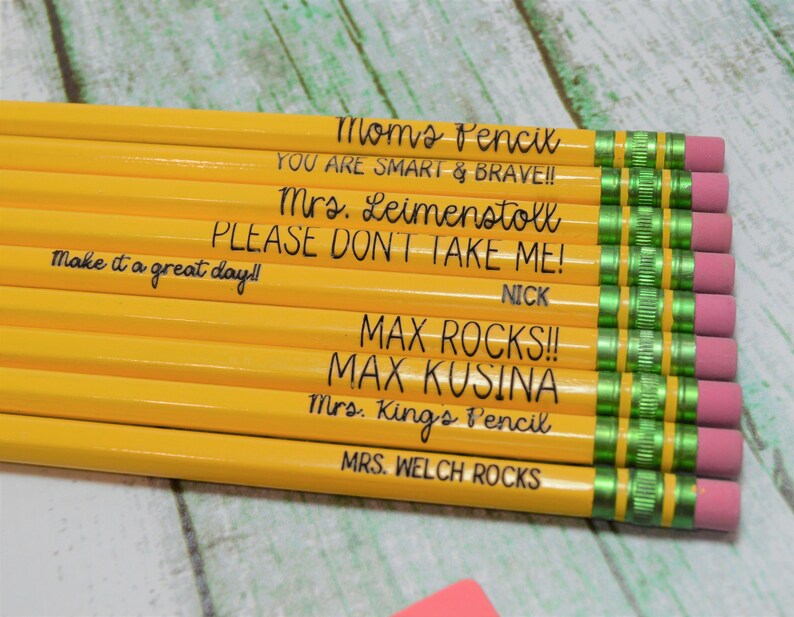 Mom's Pencil
YOU ARE SMART & BRAVE!!
Mrs. Leimenstoll
PLEASE DON'T TAKE ME!
Make it a great day!! NICK
MAX ROCKS!!
MAX KUSINA
Mrs. King's Pencil
MRS. WELCH ROCKS